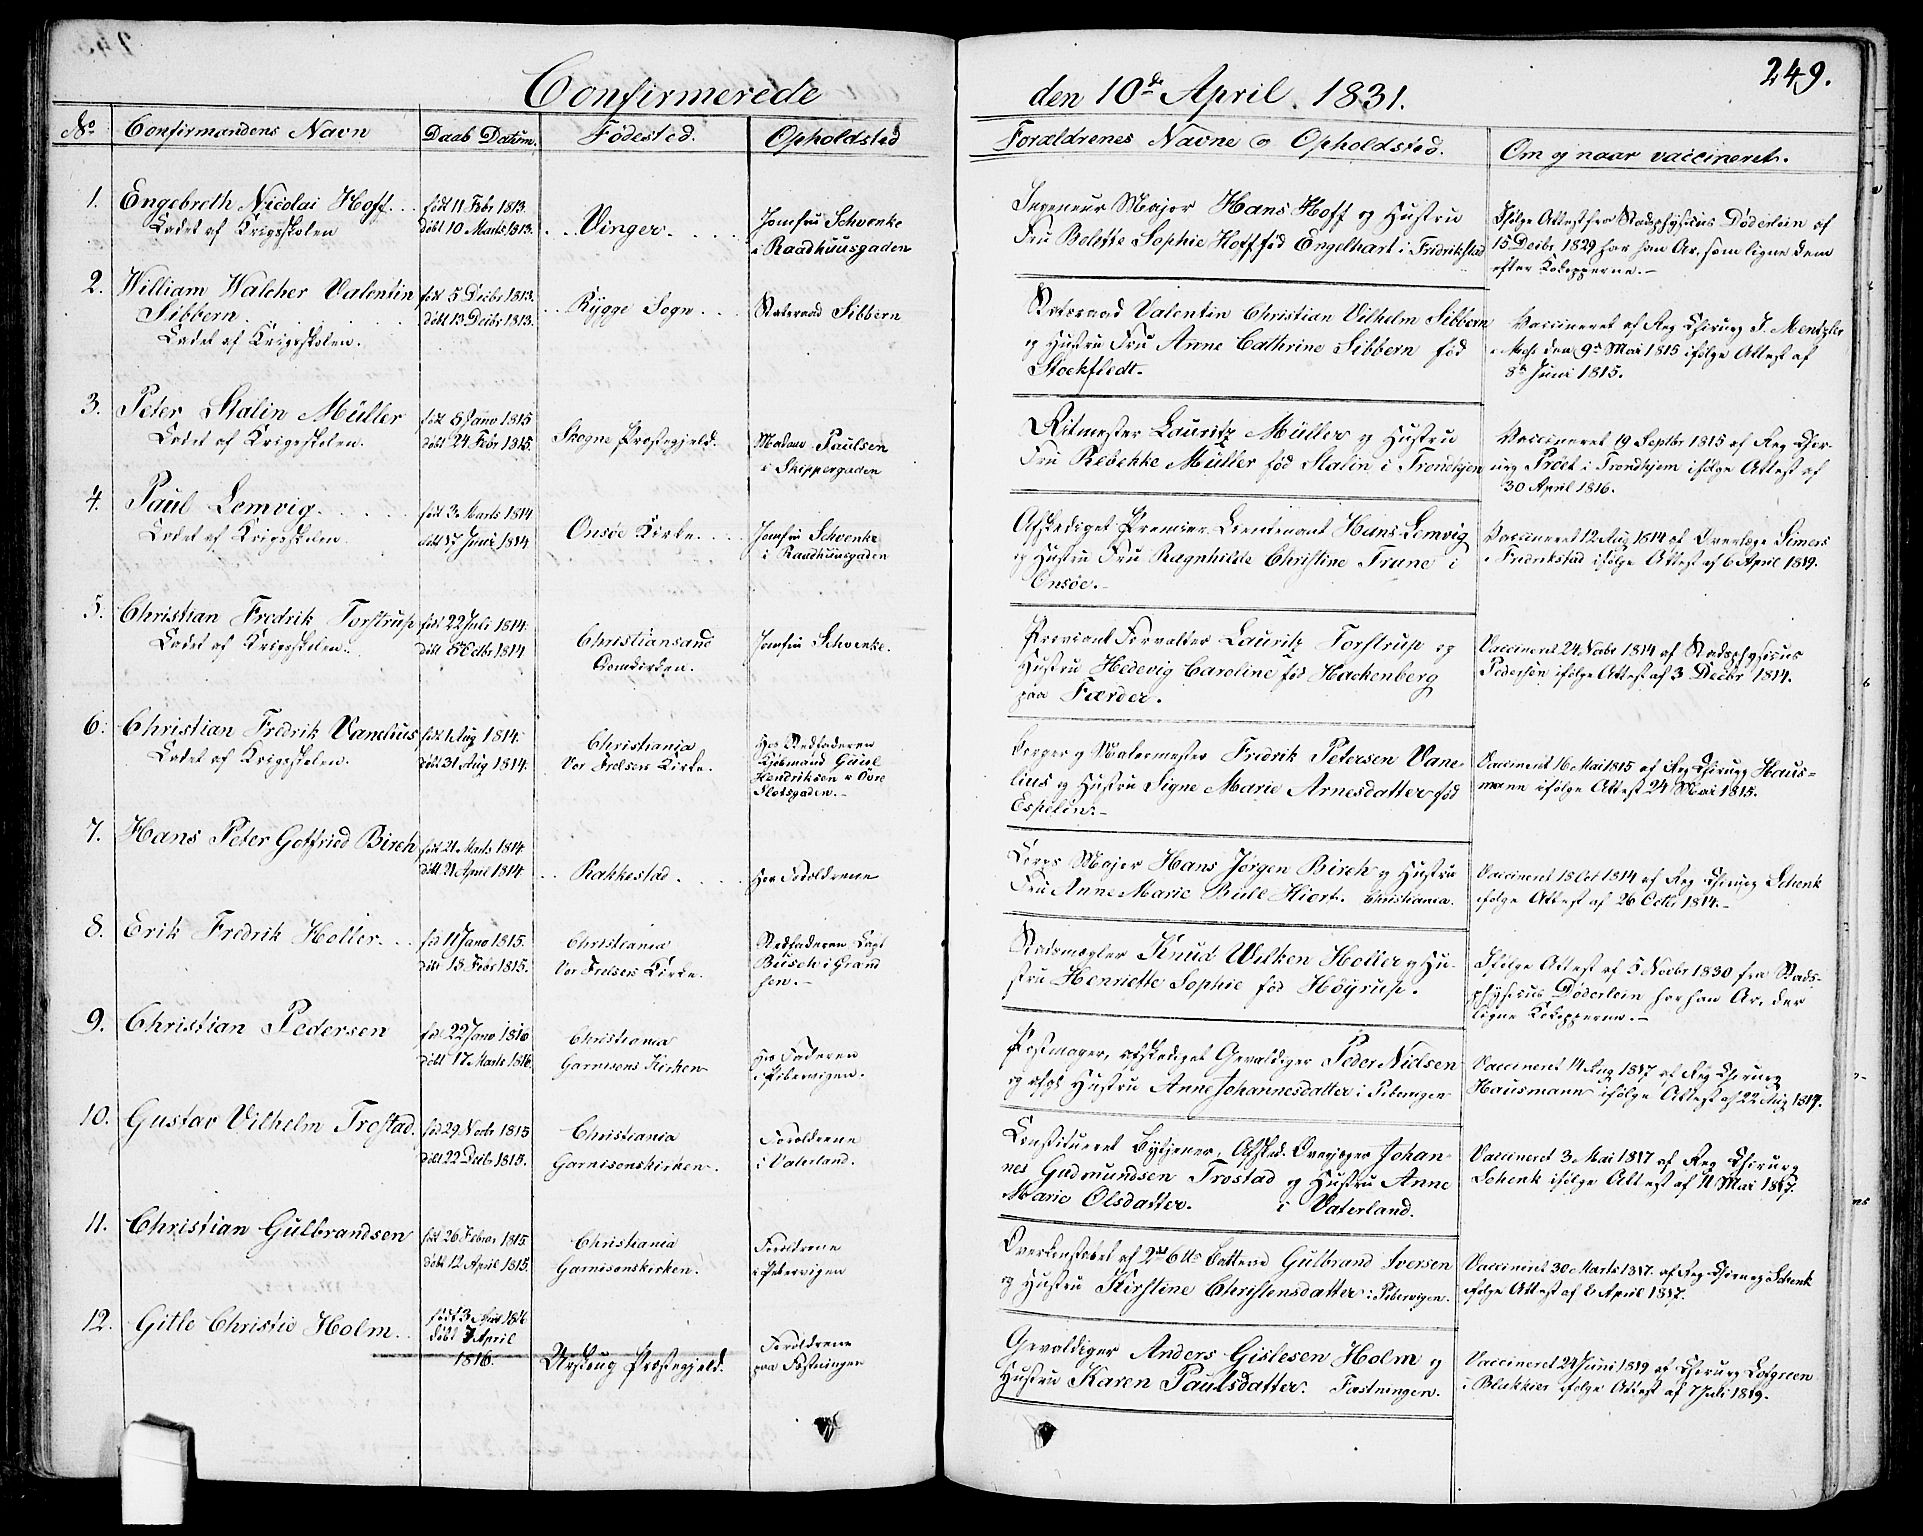 249.
Confirmerede den 10de April 1831.
No Confirmandens Navn Daab Datum. Fødested. Opholdsted Forældrenes Navne og Opholdsted. Om og naar vaccineret.
1. Engebreth Nicolai Hoff
Cadet af Krigsskolen
født 11 Febr 1813.
døbt 10 Marts 1813.
Vinger
Jomfru Schvenke
i Raadhuusgaden
Ingeneur Major Hans Hoff og Hustru
Fru Bolette Sophie Hoff fød Engelhart i Fredrikstad
Ifølge Attest fra Stadsphysicus Døderlein af
15 Decbr 1829 har han Ar, som ligne dem
efter Kokopperne.
2. William Walcher Valentin
Sibbern
Cadet af Krigsskolen.
født 5 Decbr 1813.
døbt 13 Decbr 1813.
Rygge Sogn
Statsraad Sibbern
Statsraad Valentin Christian Vilhelm Sibbern
og Hustru Fru Anne Cathrine Sibbern fød
Stockfledt.
Vaccineret af Reg Chirurg J. Mentzler
i Moss den 9de Mai 1815 ifølge Attest af
8de Juni 1815.
3. Peter Stalin Müller
Cadet af Krigsskolen.
født 8 Jano 1815
døbt 24 Febr 1815.
Skogne Præstegjeld.
Madam Paulsen
i Skippergaden
Ritmester Lauritz Müller og Hustru
Fru Rebekke Müller fød Stalin i Trondhjem
Vaccineret 19 Septbr 1815 af Reg Chir-
urg Pröet i Trondhjem ifølge Attest af
30 April 1816.
4. Paul Lemvig
Cadet af Krigsskolen
født 3 Marts 1814
døbt 17 Juni 1814
Onsøe Kirke
Jomfru Schvenke
i Raadhuusgaden
Afskediget Premier Lieutenant Hans Lemvig
og Hustru Fru Ragnhilde Christine Trune i
Onsøe.
Vaccineret 12 Aug 1814 af Overlæge Simers
i Fredrikstad ifølge Attest af 6 April 1819.
5. Christian Fredrik Torstrup
Cadet af Krigsskolen.
født 22 Juli 1814.
døbt 8 Octbr 1814
Christiansand
Domkirken.
Jomfru Schvenke.
Proviant Forvalter Lauritz Torstrup og
Hustru Hedevig Caroline fød Hackenberg
paa Færder.
Vaccineret 24 Novbr 1814 af Stadsphysicus
Pedersen ifølge Attest af 3 Decbr 1814.
6. Christian Fredrik Vanelius
Cadet af Krigsskolen.
født 1 Aug 1814.
døbt 31 Aug 1814.
Christiania
Vor Frelsers Kirke.
Hos Stedfaderen
Kjøbmand
Hendriksen i Øvre
Slotsgaden.
Borger og Malermester Fredrik Petersen Vane-
lius og Hustru Signe Marie Arnesdatter fød
Espelin.
Vaccineret 16 Mai 1815 af Reg Chirurg Haus-
mann ifølge Attest 24 Mai 1815.
7. Hans Peter Gotfried Birch
født 21 Marts 1814.
døbt 21 April 1814
Rakkestad
Hos Forældrene
Corps Major Hans Jørgen Birch og Hustru
Fru Anne Marie Bull Hiort. Christiania.
Vaccineret 18 Oct 1814 af Reg Chirurg Schenk
ifølge Attest af 26 Octbr 1814.
8. Erik Fredrik Holler
fød 11 Jano 1815.
døbt 18 Febr 1815.
Christiania
Vor Frelsers Kirke.
Stedfaderen Capt
Busch i Grænd
sen.
Stadsmægler Knud Wilken Holler og Hu-
stru Henriette Sophie fød Höyrup.
Ifølge Attest af 5 Novbr 1830 fra Stads-
physicus Døderlein har han Ar, der
ligne Kokopperne.
9. Christian Pedersen
fød 22 Jano 1816
døbt 17 Marts 1816.
Christiania
Garnisons Kirken
Hos Faderen
i Pibervigen.
Postmager, afskediget Gevaldiger Peder Nielsen
og afgl Hustru Anne Johannesdatter i Pibervigen
Vaccineret 14 Aug 1817 af Reg Chirurg
Hausmann ifølge Attest af 22 Aug 1817.
10. Gustav Vilhelm Trostad.
fød 29 Novbr 1815
døbt 22 Decbr 1815.
Christiania
Garnisonskirken.
Forældrene
i Vaterland.
Constitueret Bytjener, Afsked. Johan-
nes Gudmundsen Trostad og Hustru Anne
Marie Olsdatter. i Vaterland.
Vaccineret 3 Mai 1817 af Reg Chirurg
Schenk ifølge Attest af 11 Mai 1817.
11. Christian Gulbrandsen
født 26 Februar 1815.
døbt 12 April 1815.
Christiania
Garnisonskirken.
Forældrene
i Pibervigen
Overkonstabel af 2det 6 Batterie Gulbrand Iversen
og Hustru Kirstine Christensdatter i Pibervigen.
Vaccineret 30 Marts 1817. af Reg Chirurg Schenk
ifølge Attest af 6 April 1817.
12. Gitle Christie Holm
født 3 April 1816
døbt 7 April
1816.
Urskoug Præstegjeld.
Forældrene
paa Fæstningen
Gevaldiger Anders Gislesen Holm og
Hustru Karen Paulsdatter. Fæstningen.
Vaccineret 29 Juni 1819 af Chirurg Lofgreen
i Blakkier ifølge Attest af 7 Juli 1819.